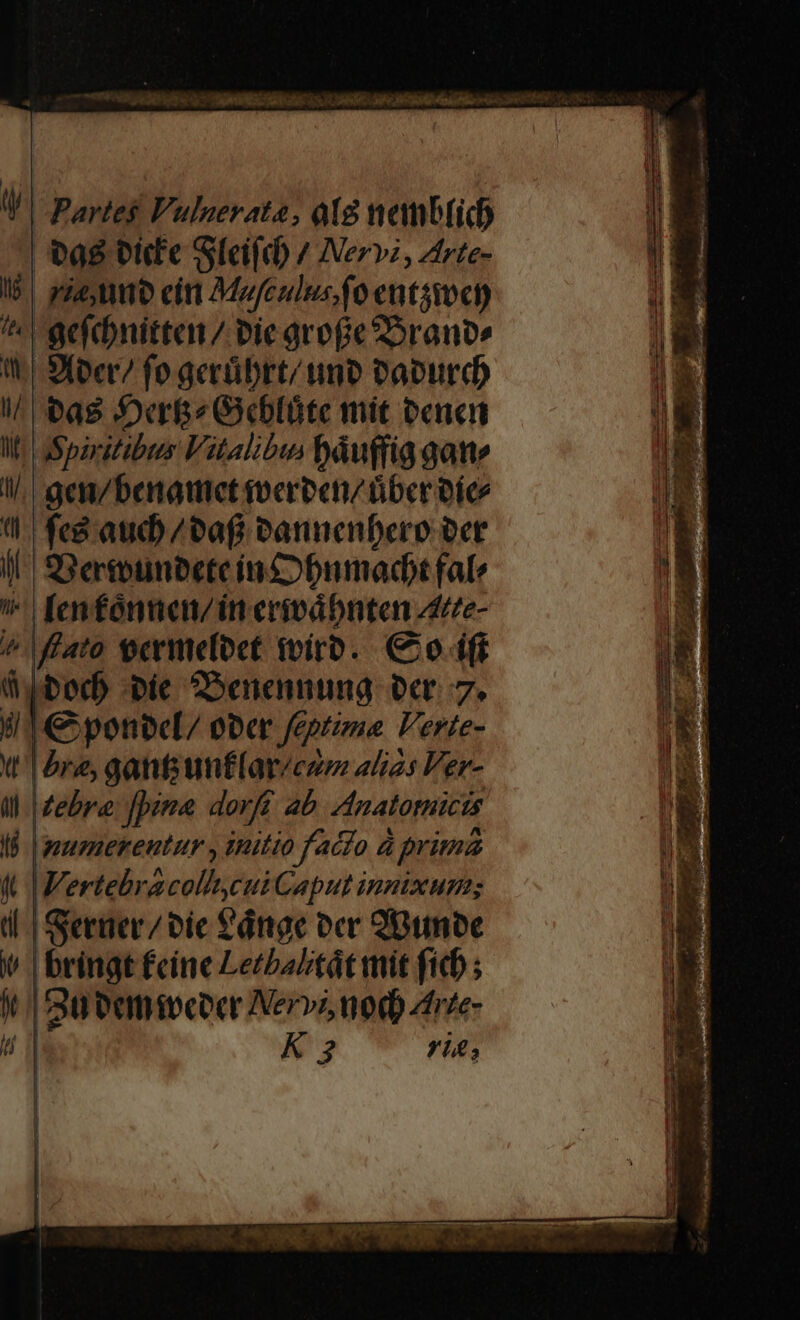 Partes Vulnerata, als nemblich
das dicke Fleisch / Nervi, Arte-
riæ, und ein Musculus, so entzwey
geschnitten / die große Brand-
Ader / so gerührt / und dadurch
das Hertz-Geblüte mit denen
Spiritibus Vitalibus häuffig gan-
gen / benamet werden / über die-
ses auch / daß dannenhero der
Verwundete in Ohnmacht fal-
len können / in erwähnten Atte-
stato vermeldet wird. So ist
doch die Benennung der 7.
Spondel / oder septimæ Verte-
bræ, gantz unklar / cùm aliàs Ver-
tebræ spinæ dorsi ab Anatomicis
numerentur, initio facto à primâ
Vertebrâ colli, cui Caput innixum;
Ferner / die Länge der Wunde
bringt keine Lethalität mit sich;
Zu dem weder Nervi, noch Arte-
K 3 riæ,